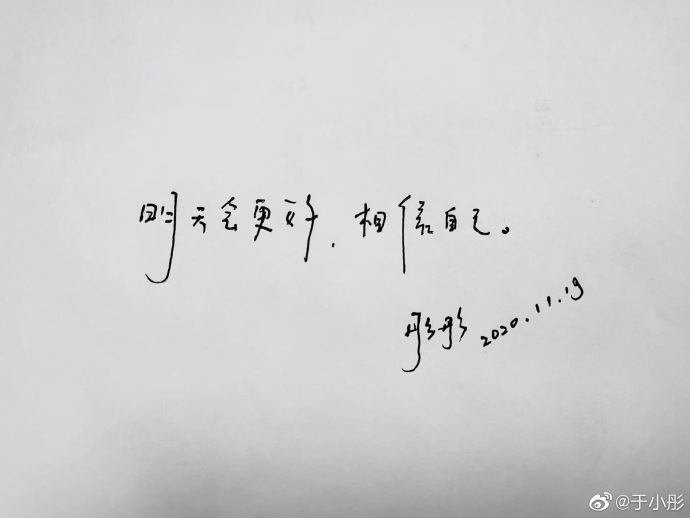 明天会更好，相信自己。
彤彤 2020.11.19
@于小彤